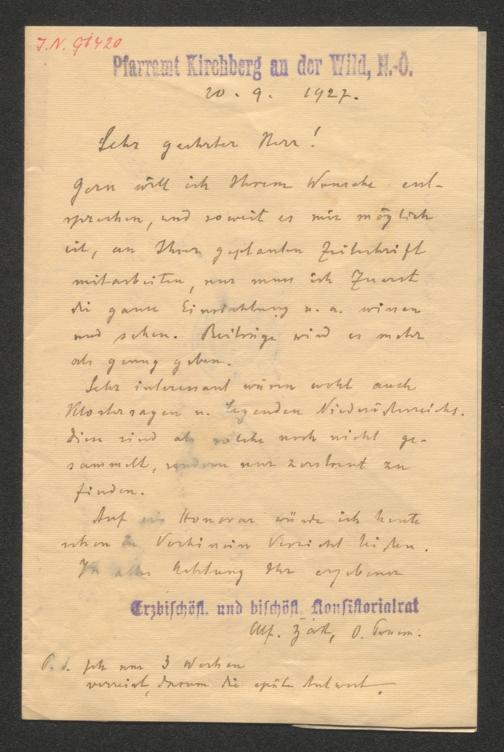 I.N. 91420
Pfarramt Kirchberg an der Wild, N.-Ö.
20. 9. 1927.
Sehr geehrter Herr!
Gern will ich Ihrem Wunsche ent-
sprechen, und soweit es mir möglich
ist, an Ihrer geplanten Zeitschrift
mitarbeiten, nur muss ich zuerst
die ganze Einrichtung u. a. wissen
und sehen. Beiträge wird es mehr
als genug geben.
Sehr interessant wären wohl auch
Klostersagen u. Legenden Niederösterreichs.
Diese sind als solche noch nicht ge-
sammelt, sondern nur zerstreut zu
finden.
Auf ein Honorar würde ich heute
schon im Vorhinein Verzicht leisten.
In aller Achtung Ihr ergebener
Erzbischöfl. und bischöfl. Konsistorialrat
Alf. Zák, O. Praem.
P. S. Ich war 3 Wochen
verreist, darum die späte Antwort.